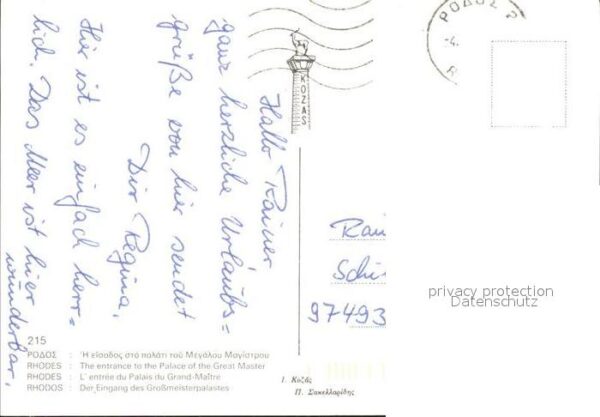 Hallo Rainer,
ganz herzliche Urlaubs=
grüße von hier sendet
Dir Regina.
Hier ist es einfach herr=
lich. Das Meer ist hier
wunderbar.
ΡΟΔΟΣ 2
-4.
KOZAS
Rai
Schi
97493
privacy protection
Datenschutz
215
ΡΟΔΟΣ : Ἡ εἴσοδος στό παλάτι τοῦ Μεγάλου Μαγίστρου
RHODES : The entrance to the Palace of the Great Master
RHODES : L'entrée du Palais du Grand-Maître
RHODOS : Der Eingang des Großmeisterpalastes
Ι. Κοζάς
Π. Σακελλαρίδης